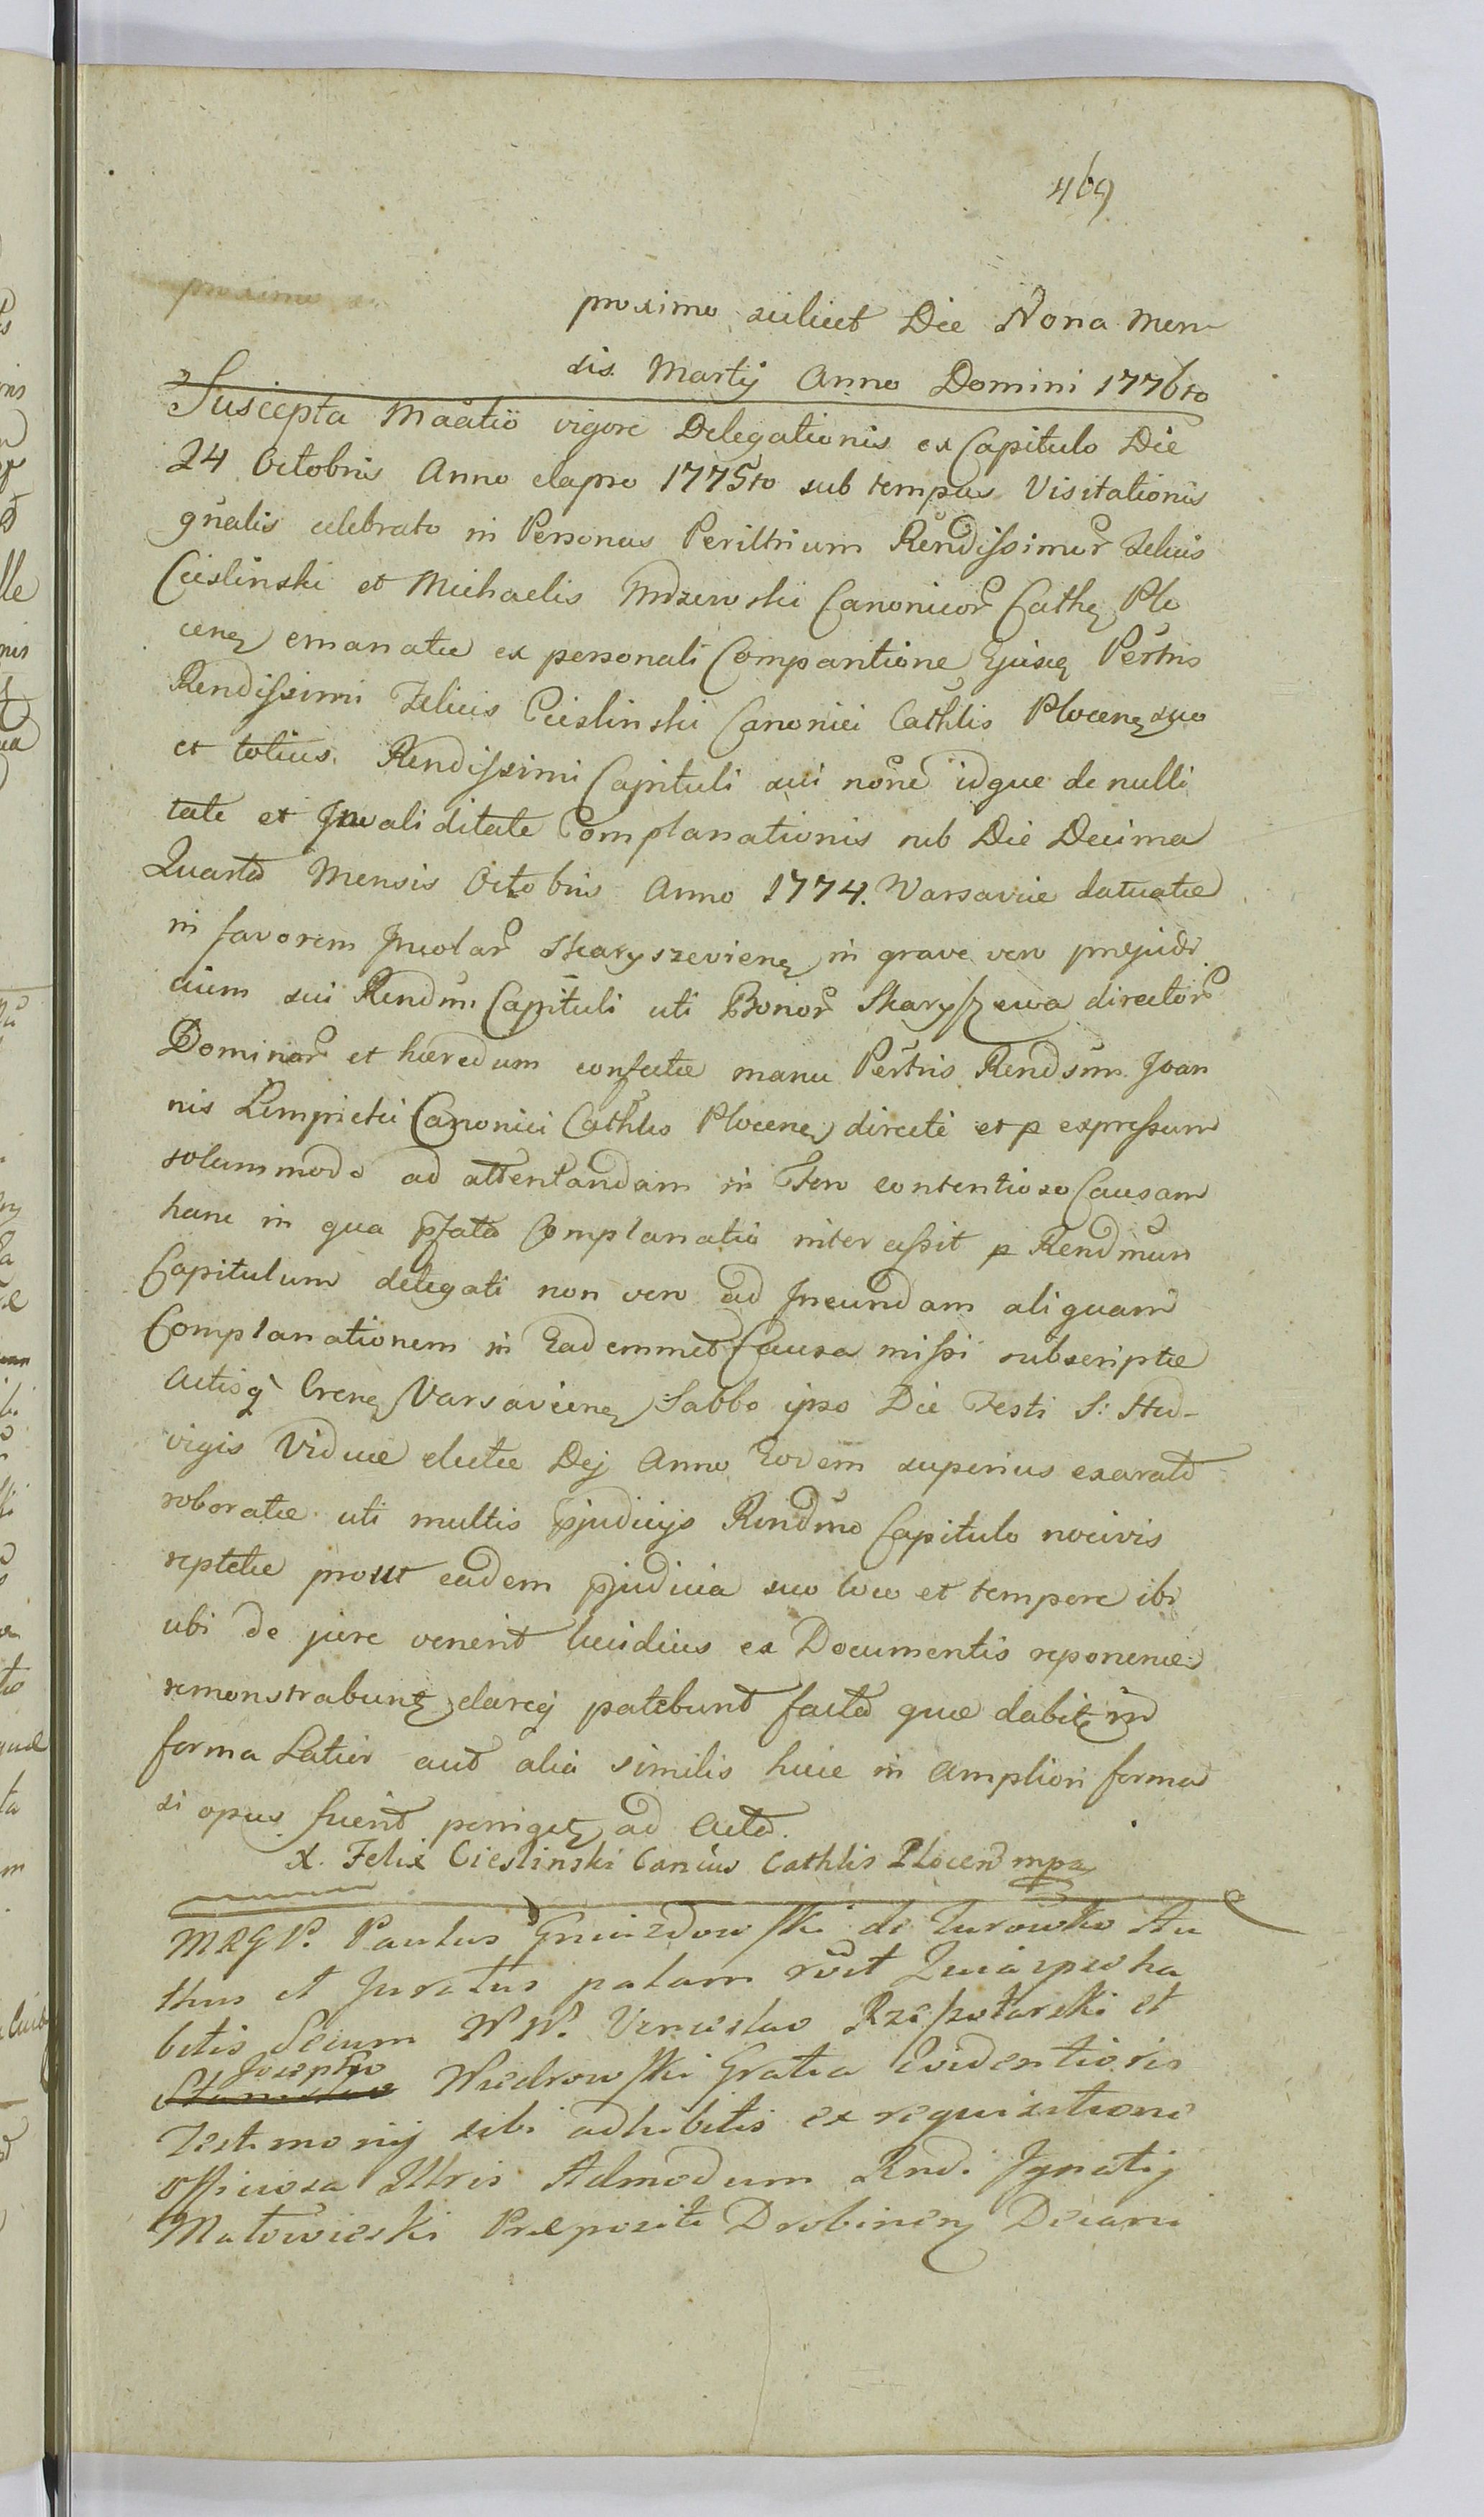 469
proximo scilicet Die Nona Men
sis Martij Anno Domini 1776to
Suscepta Maatio vigore Delegationis ex Capitulo Die
24 Octobris Anno elapso 1775to sub tempus Visitationis
gnalis celebrato in Personas Perilltrium Rendissimor Felicis
Cieslinski et Michaelis Canonicor Cathe Plo
cene emanatæ ex personali Comparitione Ejusce Perlris
Rendissimi Felicis Cieslinski Canonici Cathlis Plocene suo
et totius Rendissimi Capituli sui noñe idque de nulli
tate et Invaliditate Complanationis sub Die Decima
Quarta Mensis Octobris Anno 1774. Varsaviæ datuatæ
in favorem Incolar Skaryszeviene in grave vero prejudi
cium sui Rendmi Capituli uti Bonor Skaryszewa director
Dominor et hæredum confectæ manu Perlris Rendsmi Joan
nis Lempicki Canonici Cathlis Plocene directi et p expressum
solummodo ad attentandam in Foro contentioso Causam
hanc in qua pfata Complanatio intercessit p Rendmum
Capitulum delegati non vero ad Ineundam aliquam
Complanationem in Eademmet Causa missi subscriptæ
Actisq Crene Varsaviene Sabbo ipso Die Festi S: Hed-
vigis Viduæ electæ Dej Anno Eodem superius exarato
roboratæ uti multis pjudicijs Rendmo Capitulo nocivis
repletæ prout eadem pjudicia suo loco et tempore ibi
ubi de jure venerit lucidius ex Documentis reponendis
remonstrabunt clareq patebunt facta quæ dabit in
forma Latior aut alia similis huic in ampliori forma
si opus fuerit porriget ad Acta.
X. Felix Cieslinski Canćus Cathlis Plocen mpa
MRGP. Paulus Gniazdowski de Turowko Au
thus et Juratus palam rcvit Quia ipse ha
bitis Secum NN. Venceslao Rzeszotarski et
Josepho
Stanislao Wzedrowski Gratia Evidentioris
Testimonij sibi adhibitis ex requisitione
officiosa Illris Admodum Rndi Ignatij
Matowieski Præpositi Drobinen Decani